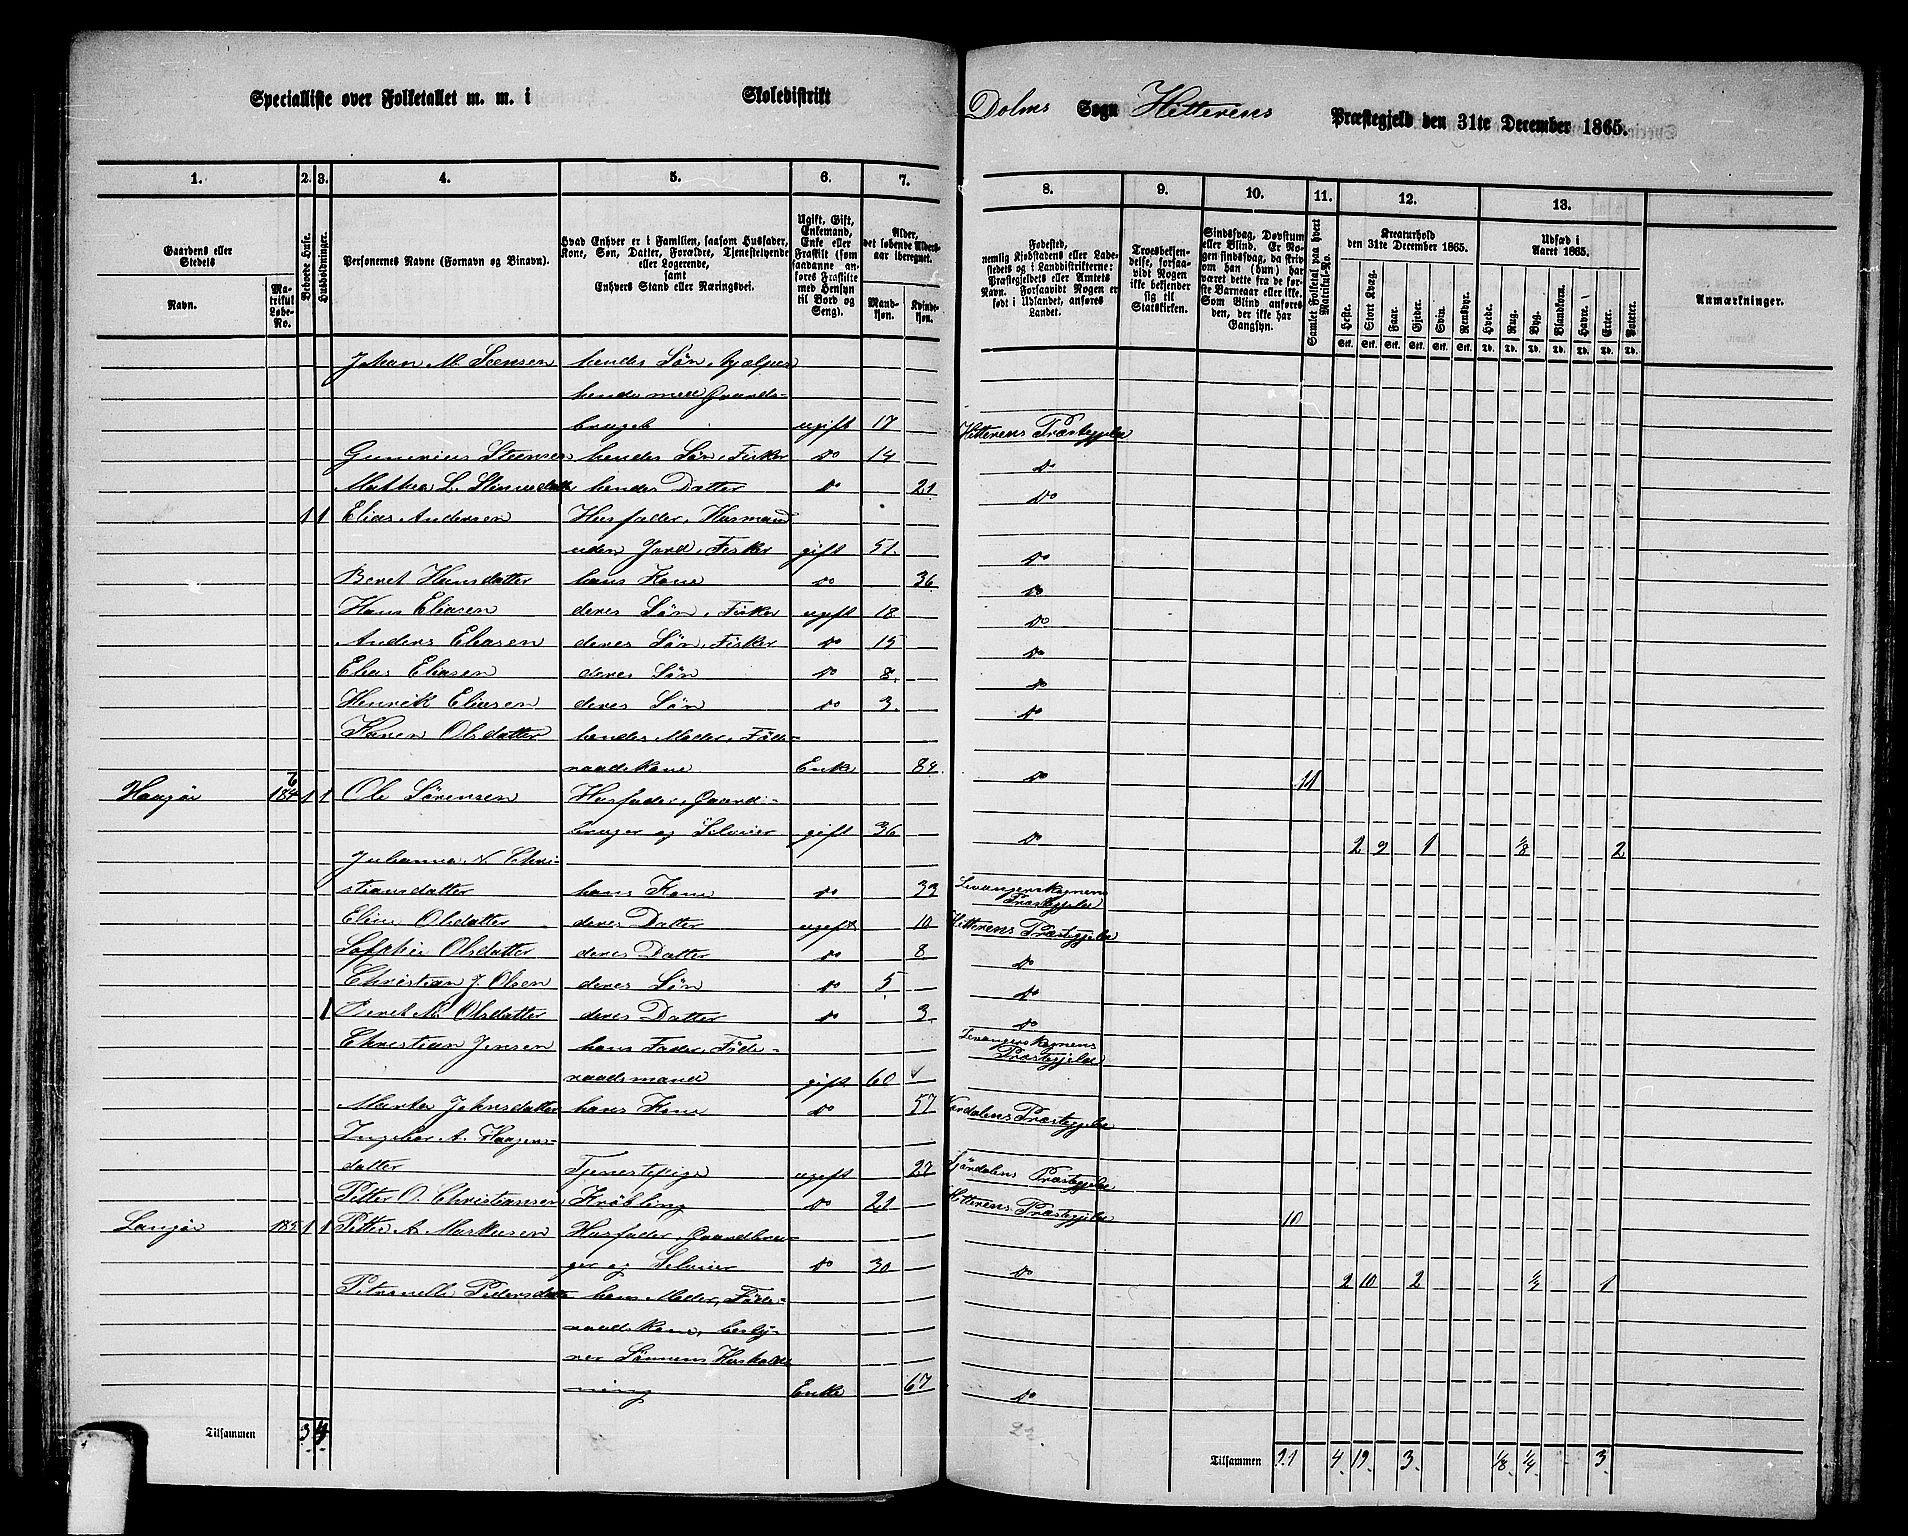 Specialliste over Folketallet m. m. i Skoledistrikt Dolms Sogn Hitterens Præstegjeld den 31te December 1865.
1. 2. 3. 4. 5. 6. 7. 8. 9. 10. 11. 12. 13.
Gaardens eller Stedets
Navn.
Matrikul Løbe-No.
Beboede Huse.
Husholdninger.
Personernes Navne (Fornavn og Binavn).
Hvad Enhver er i Familien, saasom Husfader, Kone, Søn, Datter, Forældre, Tjenestetyende eller Logerende,
samt
Enhvers Stand eller Næringsvei.
Ugift, Gift, Enkemand, Enke eller Fraskilt (som saadanne anføres Fraskilte med Hensyn til Bord og Seng).
Alder, det løbende Alders-aar iberegnet.
Mandkjøn. Kvindekjøn.
Fødested, nemlig Kjøbstadens eller Ladestedets og i Landdistrikterne: Præstegjeldets eller Amtets Navn. Forsaavidt Nogen er født i Udlandet, anføres Landet.
Troesbekjendelse, forsaavidt Nogen ikke bekjender sig til Statskirken.
Sindssvag, Døvstum eller Blind. Er Nogen sindssvag, da skrives om han (hun) har været dette fra de første Barneaar eller ikke. Som Blind anføres den, der ikke har Gangsyn.
Samlet Folketal paa hvert Matrikul-No.
Kreaturhold den 31te December 1865.
Heste. Stort Kvæg. Faar. Gjeder. Svin. Rensdyr.
Udsæd i Aaret 1865.
Hvede. Rug. Byg. Blandkorn. Havre. Erter. Poteter.
Stk. Stk. Stk. Stk. Stk. Stk. Td. Td. Td. Td. Td. Td. Td.
Anmærkninger.
Johan M. Steensen hendes Søn, hjælper
hende med Gaards-
bruget ugift 17 Hitterens Præstegjeld
Gunerius Steensen hendes Søn, Fisker do 14 do
Mathea L. Steensdatter hendes Datter do 21 do
1 1 Elias Andersen Husfader, Husmand
uden Jord, Fisker gift 51 do
Beret Hansdatter hans Kone do 36 do
Hans Eliasen deres Søn, Fisker ugift 18 do
Anders Eliasen deres Søn, Fisker do 15 do
Elias Eliasen deres Søn do 8 do
Henrik Eliasen deres Søn do 3 do
Karen Olsdatter hendes Moder, Føde-
raadskone Enke 84 do 11
Haagøe 184 6 1 1 Ole Sørensen Husfader, Gaard-
bruger og Selveier gift 36 do 2 9 1 1/8 2
Julianna N. Chri-
stiansdatter hans Kone do 33 Levangerskognens Præstegjeld
Eline Olsdatter deres Datter ugift 10 Hitterens Præstegjeld
Sophie Olsdatter deres Datter do 8 do
Christian J. Olsen deres Søn do 5 do
1 Beret M. Olsdatter deres Datter do 3 do
Christian Jensen hans Fader, Føde-
raadsmand gift 60 Levangerskognens Præstegjeld
Marta Johnsdatter hans Kone do 57 Værdalens Præstegjeld
Ingebor A. Haagens-
datter Tjenestepige ugift 22 Stjørdalens Præstegjeld
Petter O. Christiansen Krøbling do 21 Hitterens Præstegjeld 10
Langøe 185 1 1 Petter A. Markusen Husfader, Gaardbru-
ger og Selveier do 30 do 2 10 2 1/4 1
Petronelle Pedersdatter hans Moder, Føde-
raadskone, besty-
rer Sønnens Huushold-
ning Enke 67 do
Tilsammen 3 4 Tilsammen 21 4 19 3 1/8 1/4 3